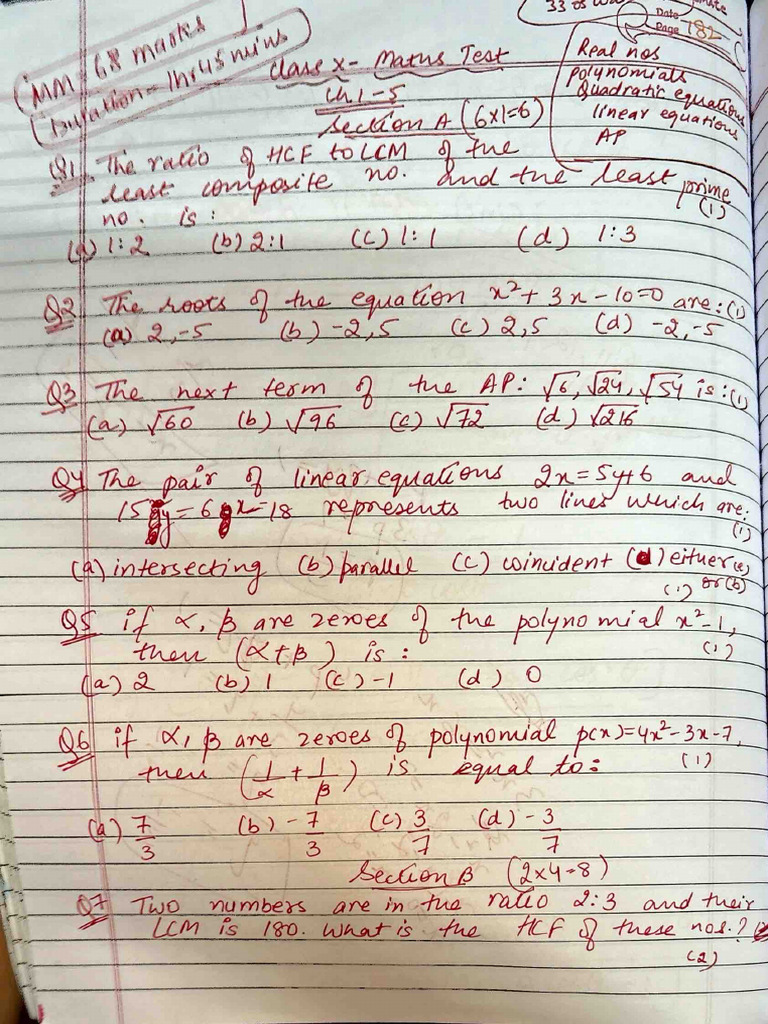 33 os
Date
Page 182
MM = 68 marks
Duration = 1hr 45 mins
Class X - Maths Test
Ch 1-5
Real nos
polynomials
Quadratic equations
linear equations
AP
Section A (6x1=6)
Q1. The ratio of HCF to LCM of the
least composite no. and the least prime
no. is : (1)
(a) 1:2 (b) 2:1 (c) 1:1 (d) 1:3
Q2 The roots of the equation x²+3x-10=0 are: (1)
(a) 2,-5 (b) -2,5 (c) 2,5 (d) -2,-5
Q3 The next term of the AP: √6, √24, √54 is: (1)
(a) √60 (b) √96 (c) √72 (d) √216
Q4 The pair of linear equations 2x=5y+6 and
15y=6x-18 represents two lines which are:
(1)
(a) intersecting (b) parallel (c) coincident (d) either (a)
or (b)
(1)
Q5 if α, β are zeroes of the polynomial x²-1,
then (α+β) is : (1)
(a) 2 (b) 1 (c) -1 (d) 0
Q6 if α, β are zeroes of polynomial p(x)=4x²-3x-7,
then (1/α + 1/β) is equal to: (1)
(a) 7/3 (b) -7/3 (c) 3/7 (d) -3/7
Section B (2x4=8)
Q7 Two numbers are in the ratio 2:3 and their
LCM is 180. What is the HCF of these nos.?
(2)